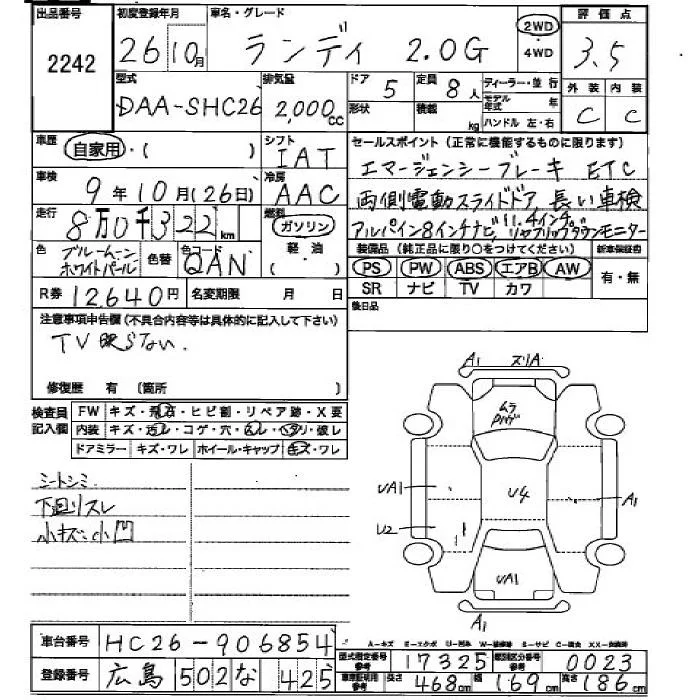 出品番号 初度登録年月 車名・グレード 評価点
2242 26 10月 ランディ 2.0G 2WD・4WD 3.5
型式 排気量 ドア 5 定員 8人 ディーラー・並行 外装 内装
DAA-SHC26 2,000cc 形状 積載 kg モデル年式 年 C C
ハンドル 左・右
車歴 自家用・( ) シフト IAT セールスポイント (正常に機能するものに限ります)
エマージェンシーブレーキ ETC
車検 9年10月(26日) 冷房 AAC 両側電動スライドドア 長い車検
走行 8万0千322km 燃料 ガソリン・軽・油 アルパイン8インチナビ 11.4インチ リヤフリップダウンモニター
色 ブルームーンホワイトパール 色替 色コード QAN 装備品 (純正品に限り○をつけてください) 新車保証書
PS PW ABS エアB AW 有・無
R券 12640円 名変期限 月 日 SR ナビ TV カワ
注意事項申告欄(不具合内容等は具体的に記入して下さい) 後日品
TV映らない.
修復歴 有 (箇所 )
検査員記入欄 FW キズ・飛石・ヒビ割・リペア跡・X要
内装 キズ・汚レ・コゲ・穴・スレ・ヘタリ・破レ
ドアミラー キズ・ワレ ホイール・キャップ キズ・ワレ
A1 スリA
ムラ
シートシミ
下廻リスレ
小キズ・小凹
UA1 U4 A1
U2
UA1
A1
車台番号 HC26-906854
A-キズ E-エクボ U-凹み W-補修跡 S-サビ C-腐食 XX-交換済
型式指定番号 参考 17325 類別区分番号 参考 0023
登録番号 広島 502 な 425
車庫証明用 参考 長さ 468cm 幅 169cm 高さ 186cm